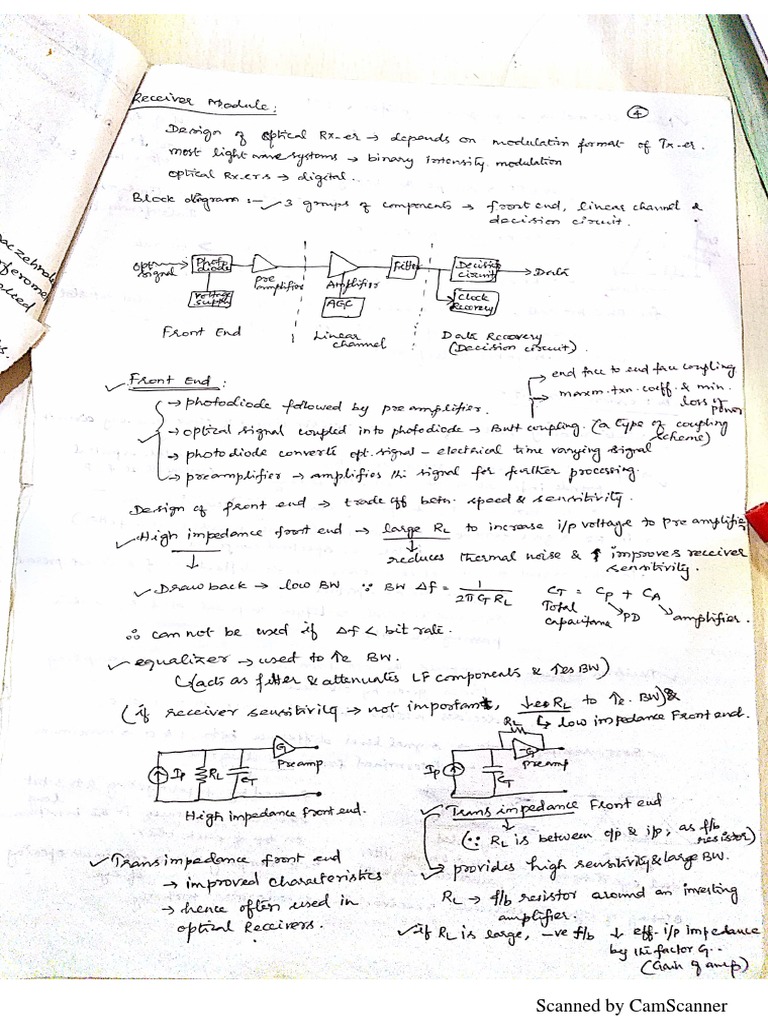 Receiver Module:
④
Design of optical Rx-er → depends on modulation format of Tx-er.
most light wave systems → binary intensity modulation
optical Rx.ers → digital.
Block diagram :- ✓ 3 groups of components → front end, linear channel &
decision circuit.
optical signal
Photo diode
voltage supply
pre amplifier
Amplifier
AGC
Filter
Decision circuit
Clock Recovery
→ Data
Front End
Linear channel
Data Recovery
(Decision circuit).
✓ Front End:
→ end face to end face coupling
→ maxm. txn. coeff. & min.
loss of power
→ photodiode followed by preamplifier.
→ optical signal coupled into photodiode → Butt coupling. (a type of coupling
scheme)
→ photodiode converts opt. signal – electrical time varying signal
→ preamplifier → amplifies the signal for further processing.
Design of front end → trade off betn. speed & sensitivity.
✓ High impedance front end → large RL to increase i/p voltage to preamplifier
↓
reduces thermal noise & ↑ improves receiver
sensitivity.
✓ Drawback → low BW ∵ BW Δf = 1 / 2π CT RL
CT = CP + CA
Total capacitance
PD
amplifier.
∴ can not be used if Δf < bit rate.
✓ equalizer → used to ↑e BW.
↳ (acts as filter & attenuates LF components & ↑es BW)
(if receiver sensitivity → not important, ↓es RL to ↑e. BW) &
↳ low impedance Front end.
IP
RL
CT
G
Preamp
High impedance front end.
RL
IP
CT
-G
Preamp
✓ Trans impedance Front end
(∵ RL is between o/p & i/p, as f/b
resistor)
✓ provides high sensitivity & large BW.
RL → f/b resistor around an inverting
amplifier.
✓ if RL is large, -ve f/b ↓ eff. i/p impedance
by the factor G..
(Gain of amp)
✓ Transimpedance front end
→ improved characteristics
→ hence often used in
optical Receivers.
Scanned by CamScanner